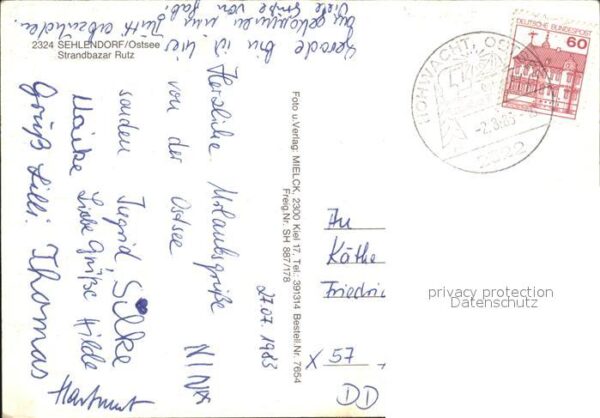 2324 SEHLENDORF/Ostsee
Strandbazar Rutz
Gerade bin ich hier
angekommen um
Viele Grüße von Gabi
Herzliche Urlaubsgrüße
von der Ostsee
senden Ingrid Silke
Maike Liebe Grüße Hilde
Gruß Lilli Thomas
Hartmut
27.07.1983
Foto u. Verlag: MIELCK, 2300 Kiel 17, Tel.: 391314 Bestell.Nr. 7654
Freig.Nr. SH 887/178
HOHWACHT, OSTSEE
DEUTSCHE BUNDESPOST
60
An
Käthe
Friedri
X 57
DD
privacy protection
Datenschutz